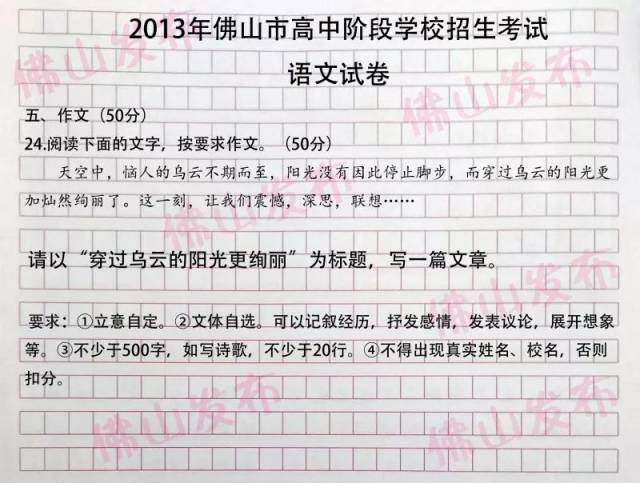 2013年佛山市高中阶段学校招生考试
语文试卷
五、作文（50分）
24.阅读下面的文字，按要求作文。（50分）
天空中，恼人的乌云不期而至，阳光没有因此停止脚步，而穿过乌云的阳光更
加灿然绚丽了。这一刻，让我们震撼，深思，联想……
请以“穿过乌云的阳光更绚丽”为标题，写一篇文章。
要求：①立意自定。②文体自选。可以记叙经历，抒发感情，发表议论，展开想象
等。③不少于500字，如写诗歌，不少于20行。④不得出现真实姓名、校名，否则
扣分。
佛山发布
佛山发布
佛山发布
佛山发布
佛山发布
佛山发布